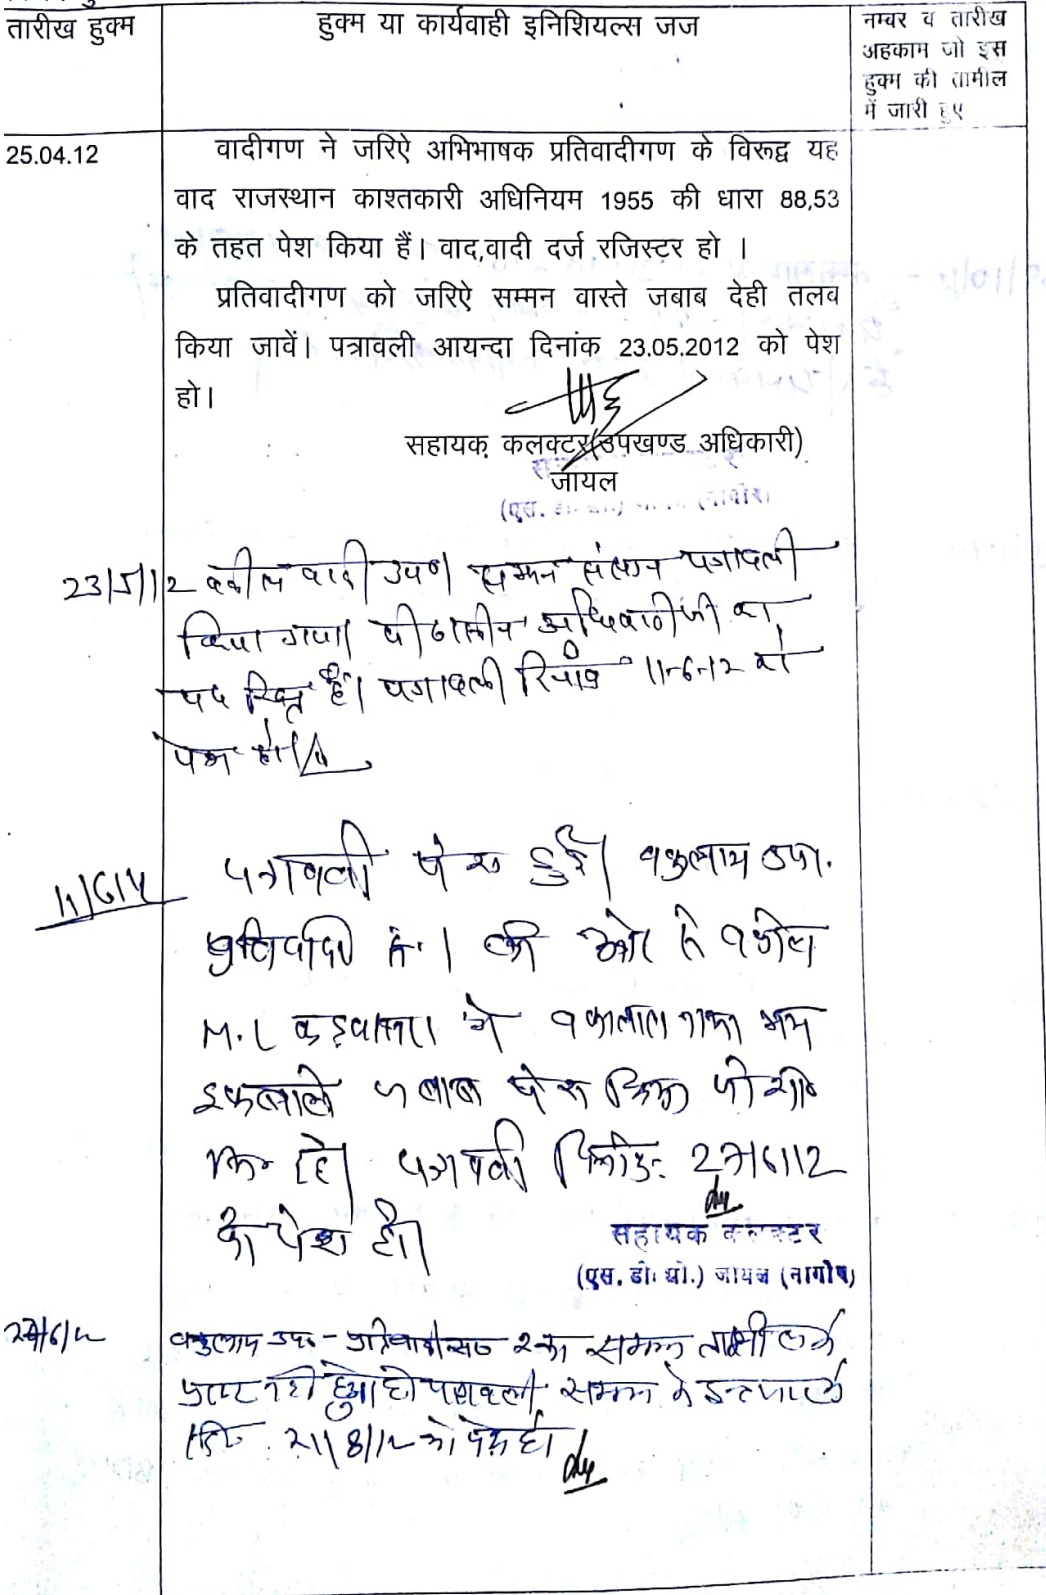 तारीख हुक्म
हुक्म या कार्यवाही इनिशियल्स जज
नम्बर व तारीख
अहकाम जो इस
हुक्म की तामील
में जारी हुए
25.04.12
वादीगण ने जरिऐ अभिभाषक प्रतिवादीगण के विरूद्व यह
वाद राजस्थान काश्तकारी अधिनियम 1955 की धारा 88,53
के तहत पेश किया हैं। वाद,वादी दर्ज रजिस्टर हो ।
प्रतिवादीगण को जरिऐ सम्मन वास्ते जबाब देही तलब
किया जावें। पत्रावली आयन्दा दिनांक 23.05.2012 को पेश
हो।
सहायक कलक्टर(उपखण्ड अधिकारी)
जायल
23/5/12 वकील वादी उप0। सम्मन संलग्न पत्रावली
किया गया। पीठासीन अधिकारीजी का
पद रिक्त है। पत्रावली दिनांक 11-6-12 को
पेश हो।
11/6/12
पत्रावली पेश हुई। वकुलाय उपा.
प्रतिवादी सं. 1 की ओर से वकील
M.L कड़वासरा ने वकालातनामा मय
इकबाले जबाब पेश किया जो शा0
मि0 है। पत्रावली दिनांक 27/6/12
को पेश हो।
सहायक कलक्टर
(एस. डी. ओ.) जायल (नागौर)
27/6/12
वकुलाय उप0 - प्रतिवादी सं0 2 का सम्मन तामील के
प्राप्त नही हुआ हो पत्रावली सम्मन के इन्तजार
दि0 21/8/12 को पेश हो।